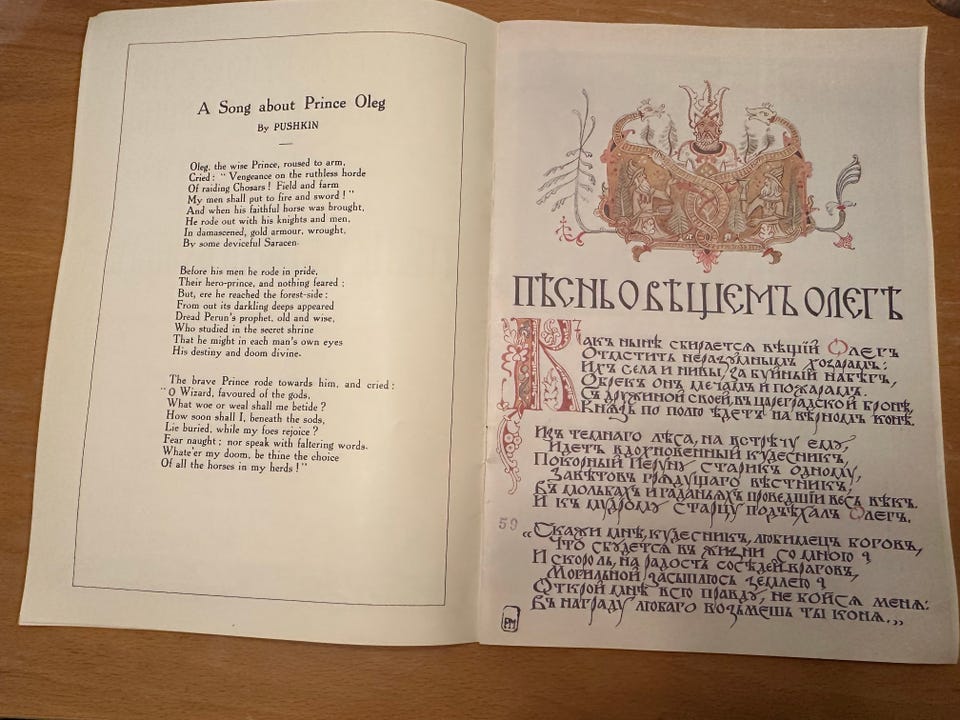 A Song about Prince Oleg
By PUSHKIN
Oleg, the wise Prince, roused to arm,
Cried: "Vengeance on the ruthless horde
Of raiding Chosars! Field and farm
My men shall put to fire and sword!"
And when his faithful horse was brought,
He rode out with his knights and men,
In damascened, gold armour, wrought,
By some deviceful Saracen.
Before his men he rode in pride,
Their hero-prince, and nothing feared;
But, ere he reached the forest-side:
From out its darkling deeps appeared
Dread Perun's prophet, old and wise,
Who studied in the secret shrine
That he might in each man's own eyes
His destiny and doom divine.
The brave Prince rode towards him, and cried:
"O Wizard, favoured of the gods,
What woe or weal shall me betide?
How soon shall I, beneath the sods,
Lie buried, while my foes rejoice?
Fear naught; nor speak with faltering words.
Whate'er my doom, be thine the choice
Of all the horses in my herds!"
ПѢСНЬ О ВѢЩЕМЪ ОЛЕГѢ
Какъ нынѣ сбирается вѣщій Олегъ
Отмстить неразумнымъ хозарамъ:
Ихъ села и нивы, за буйный набѣгъ,
Обрекъ онъ мечамъ и пожарамъ.
Съ дружиной своей, въ цареградской бронѣ,
Князь по полю ѣдетъ на вѣрномъ конѣ.
Изъ темнаго лѣса, на встрѣчу ему,
Идетъ вдохновенный кудесникъ,
Покорный Перуну старикъ одному,
Завѣтовъ грядущаго вѣстникъ,
Въ мольбахъ и гаданьяхъ проведшій весь вѣкъ.
И къ мудрому старцу подъѣхалъ Олегъ.
59
„Скажи мнѣ, кудесникъ, любимецъ боговъ,
Что сбудется въ жизни со мною?
И скоро ль, на радость сосѣдей враговъ,
Могильной засыплюсь землею?
Открой мнѣ всю правду, не бойся меня:
Въ награду любаго возьмешь ты коня.„
РМ